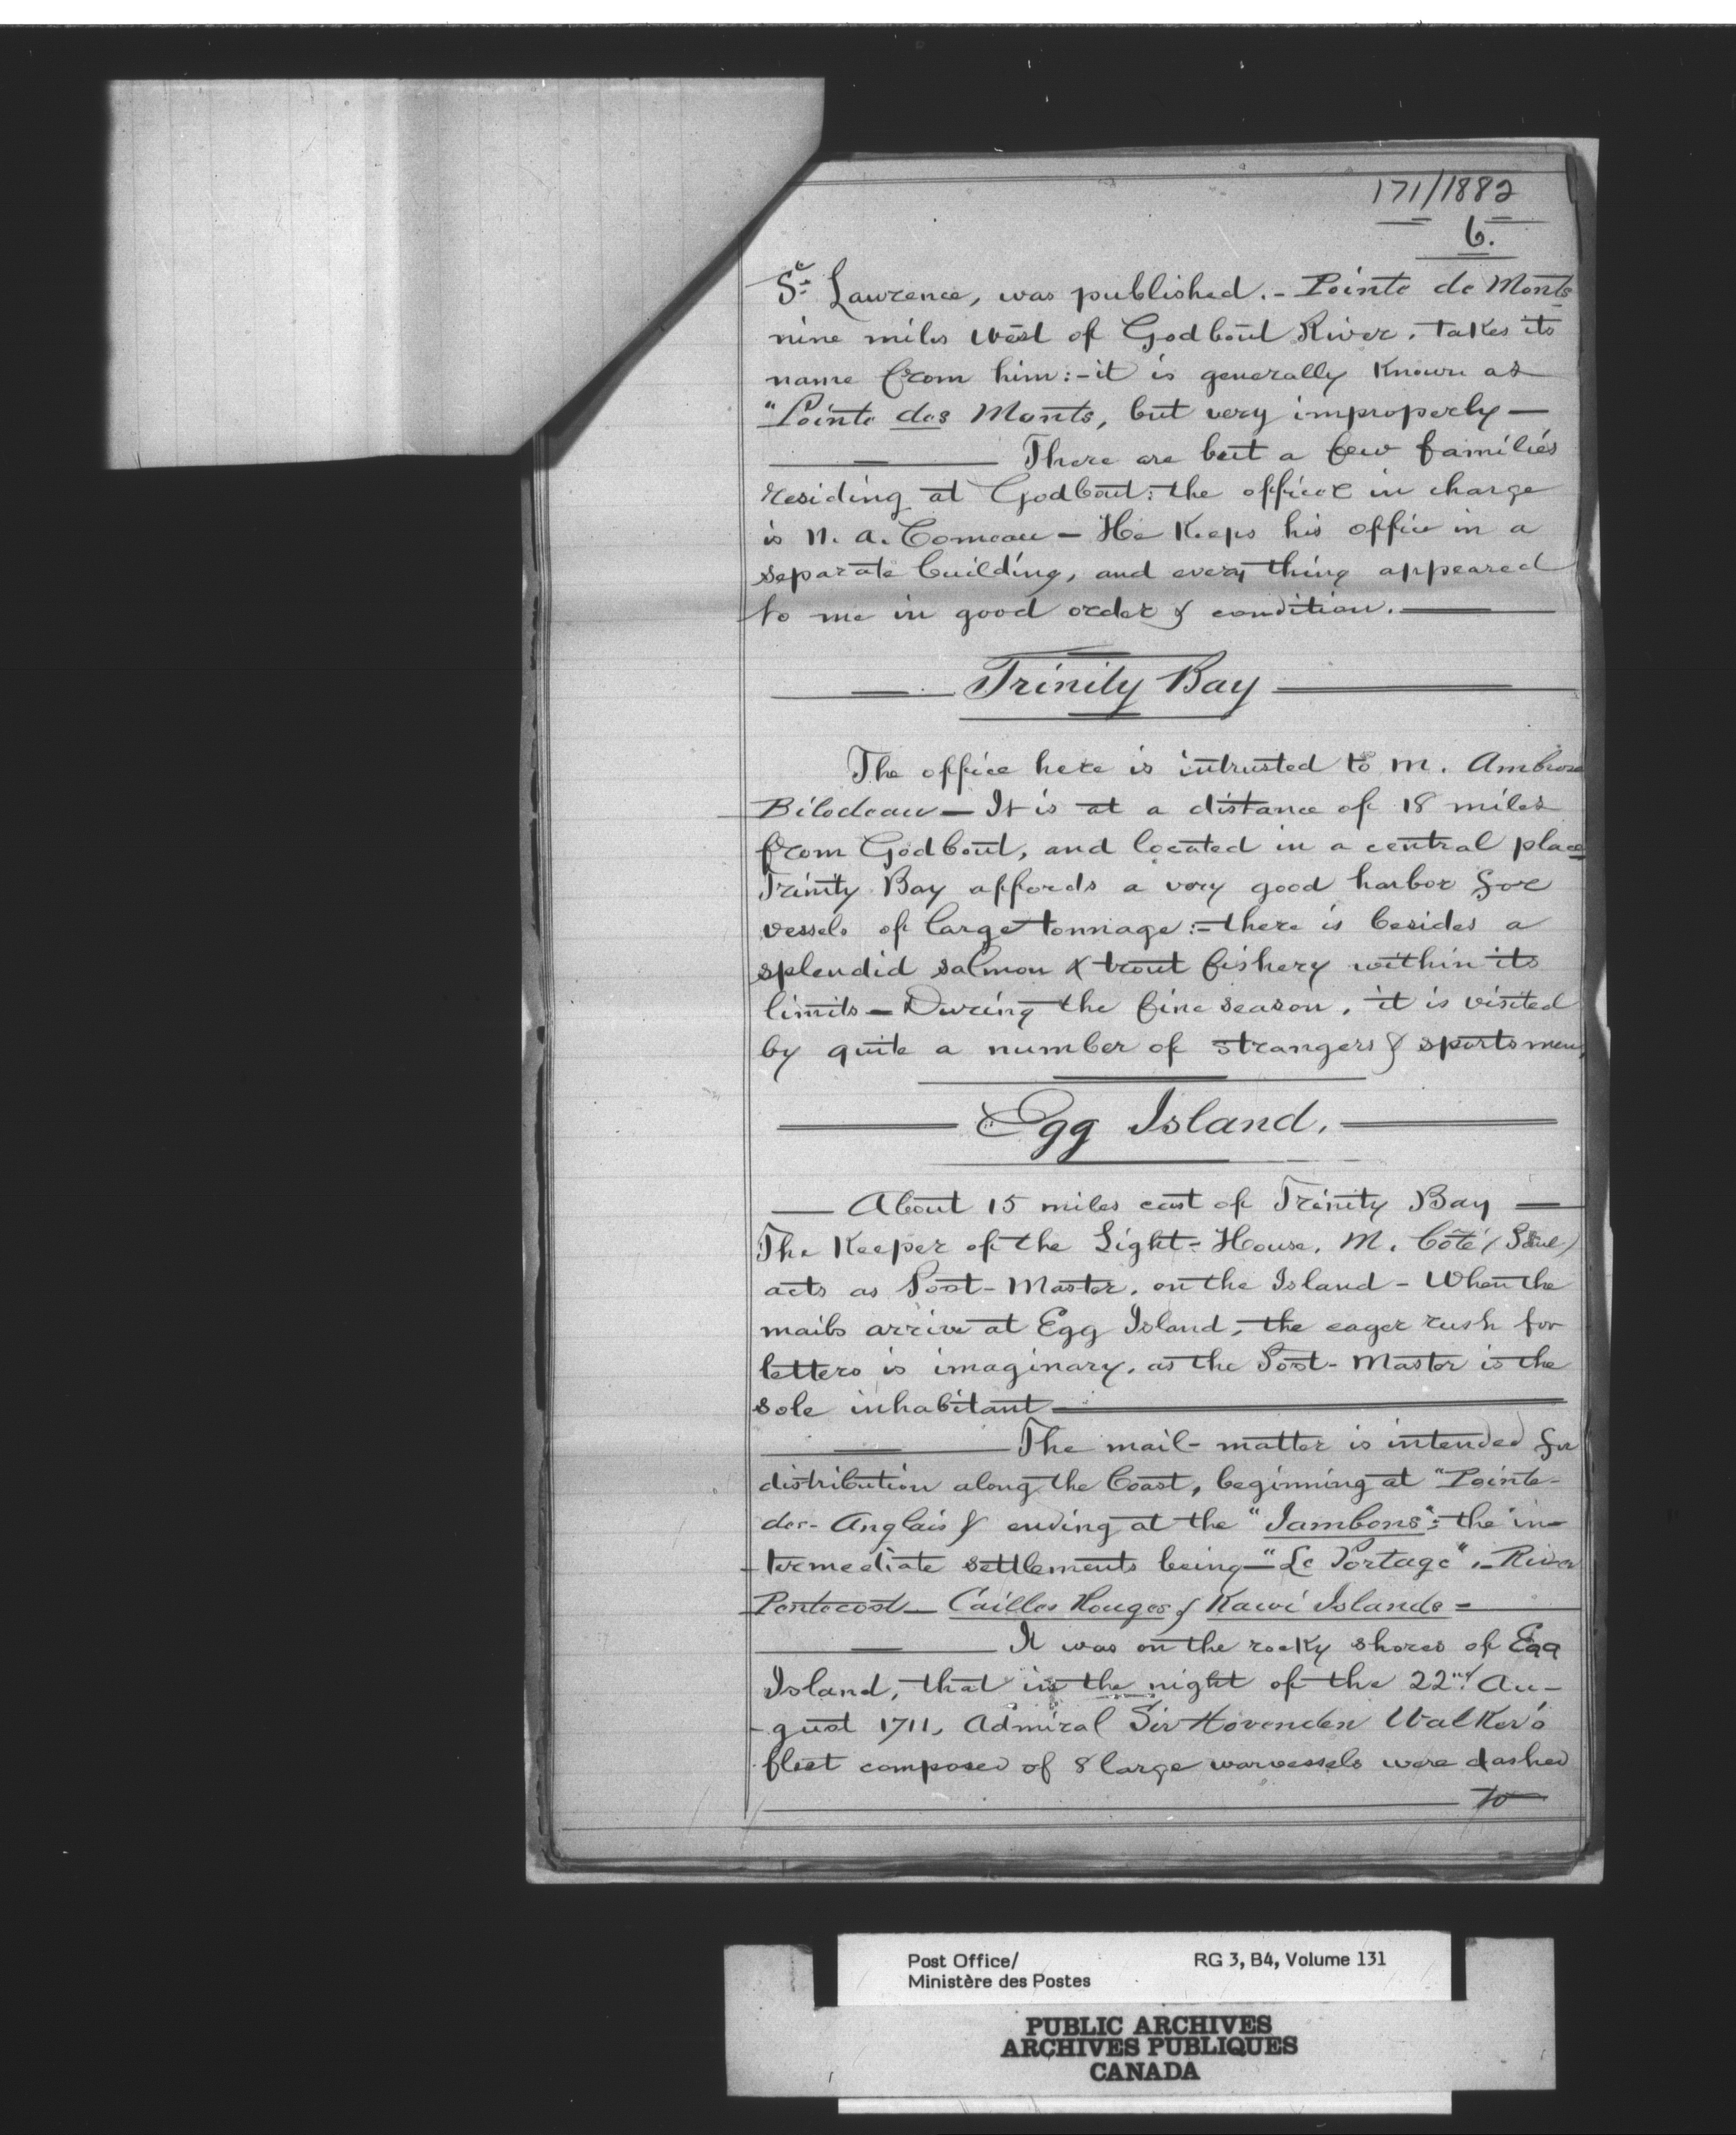 171/1882
6.
St Lawrence, was published. - Pointe de Monts
nine miles West of Godbout River, takes its
name from him: - it is generally known as
"Pointe des Monts, but very improperly —
There are but a few families
residing at Godbout: the officer in charge
is N. A. Comeau — He keeps his office in a
separate building, and every thing appeared
to me in good order & condition.
Trinity Bay
The office here is intrusted to M. Ambrose
Bilodeau — It is at a distance of 18 miles
from Godbout, and located in a central place
Trinity Bay affords a very good harbor for
vessels of large tonnage: - there is besides a
splendid salmon & trout fishery within its
limits — During the fine season, it is visited
by quite a number of strangers & sportsmen,
Egg Island.
— About 15 miles east of Trinity Bay —
The Keeper of the Light-House, M. Côté (Paul)
acts as Post-Master, on the Island - When the
mails arrive at Egg Island, the eager rush for
letters is imaginary, as the Post-Master is the
sole inhabitant
The mail-matter is intended for
distribution along the Coast, beginning at "Pointe-
des-Anglais & ending at the "Jambons": the in-
termediate settlements being — "Le Portage", - River
Pentecost — Cailles Rouges & Kawi Islands -
It was on the rocky shores of Egg
Island, that in the night of the 22nd Au-
-gust 1711, Admiral Sir Hovenden Walker's
fleet composed of 8 large warvessels were dashed
to
Post Office/
Ministère des Postes
RG 3, B4, Volume 131
PUBLIC ARCHIVES
ARCHIVES PUBLIQUES
CANADA